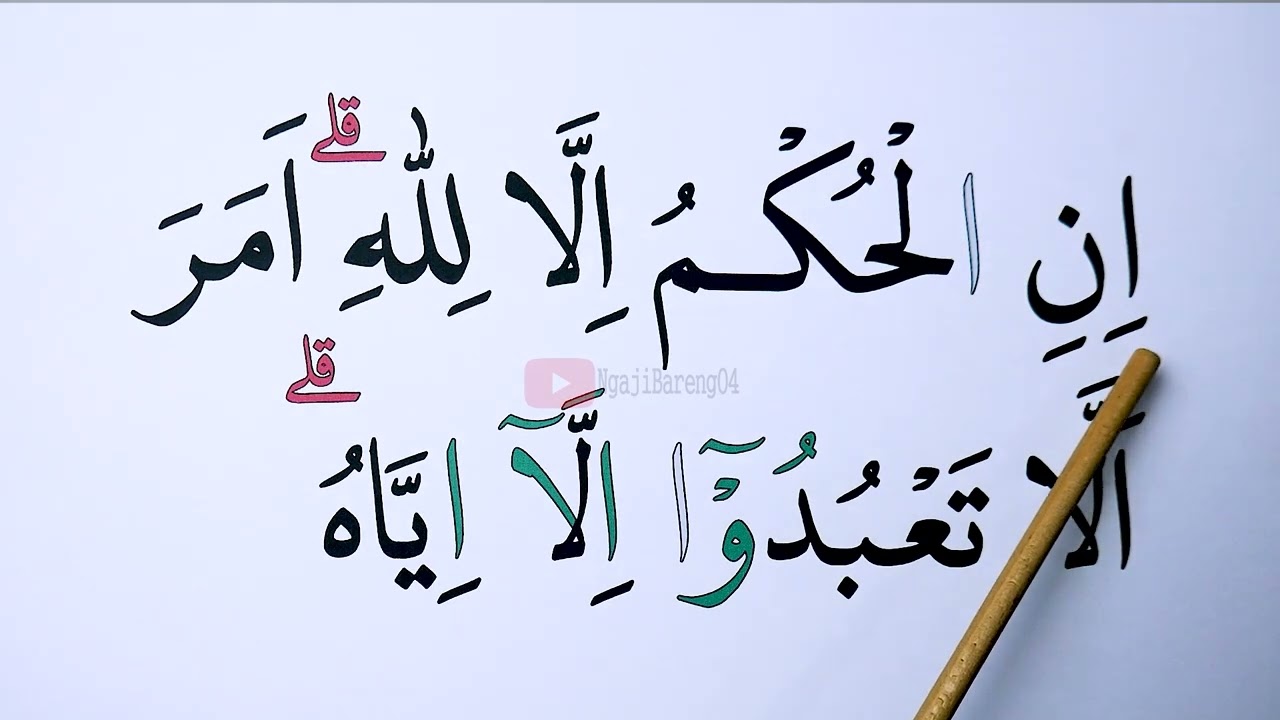 اِنِ الْحُكْمُ اِلَّا لِلّٰهِ ۗ اَمَرَ
NgajiBareng04
اَلَّا تَعْبُدُوْٓا اِلَّآ اِيَّاهُ ۗ